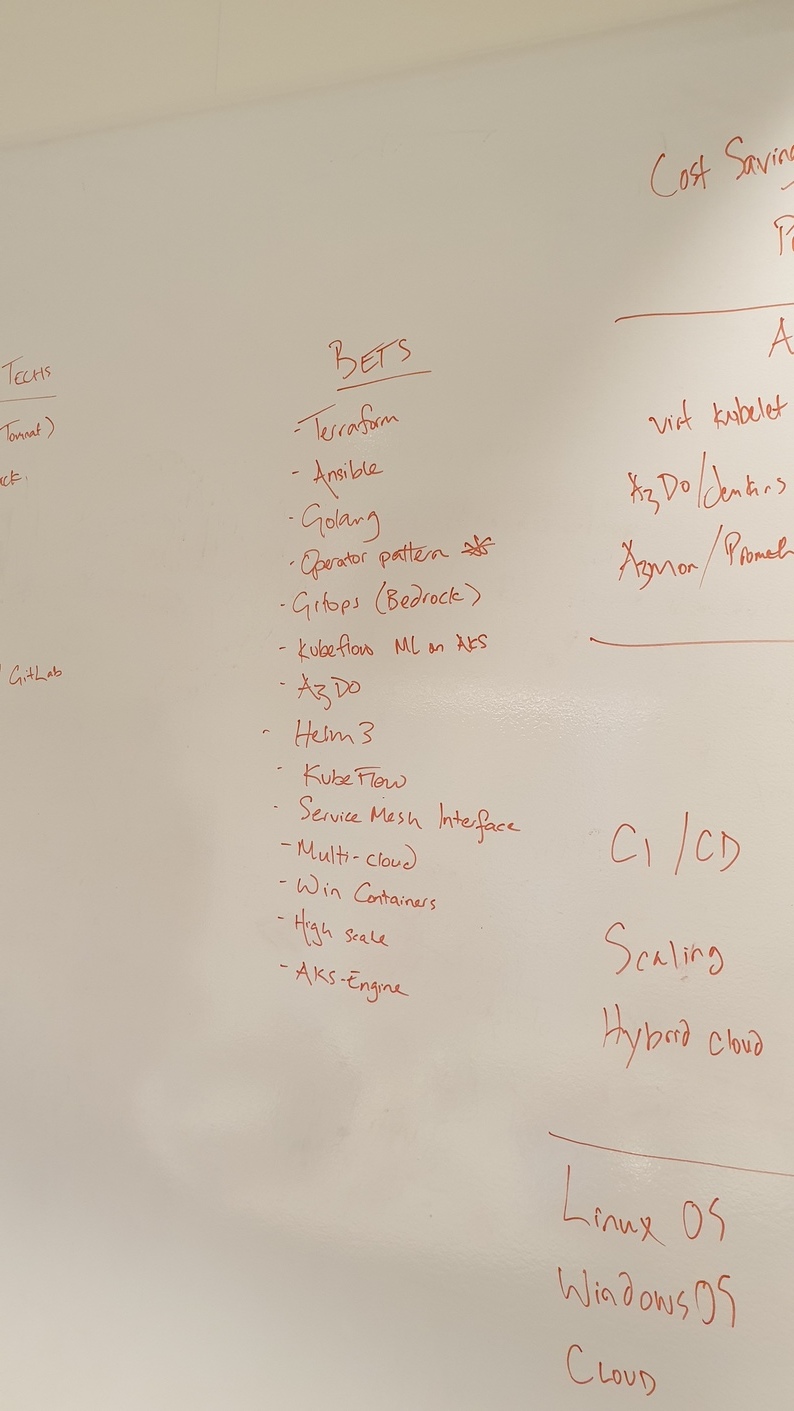 TECHS
Tomcat)
GitLab
BETS
- Terraform
- Ansible
- Golang
- Operator pattern *
- Gitops (Bedrock)
- Kubeflow ML on AKS
- AzDO
- Helm 3
- KubeFlow
- Service Mesh Interface
- Multi-cloud
- Win Containers
- High scale
- AKS-Engine
Cost Saving
P
A
virt kubelet
AzDo/Jenkins
Azmon/Prometh
CI/CD
Scaling
Hybrid cloud
Linux OS
Windows OS
CLOUD